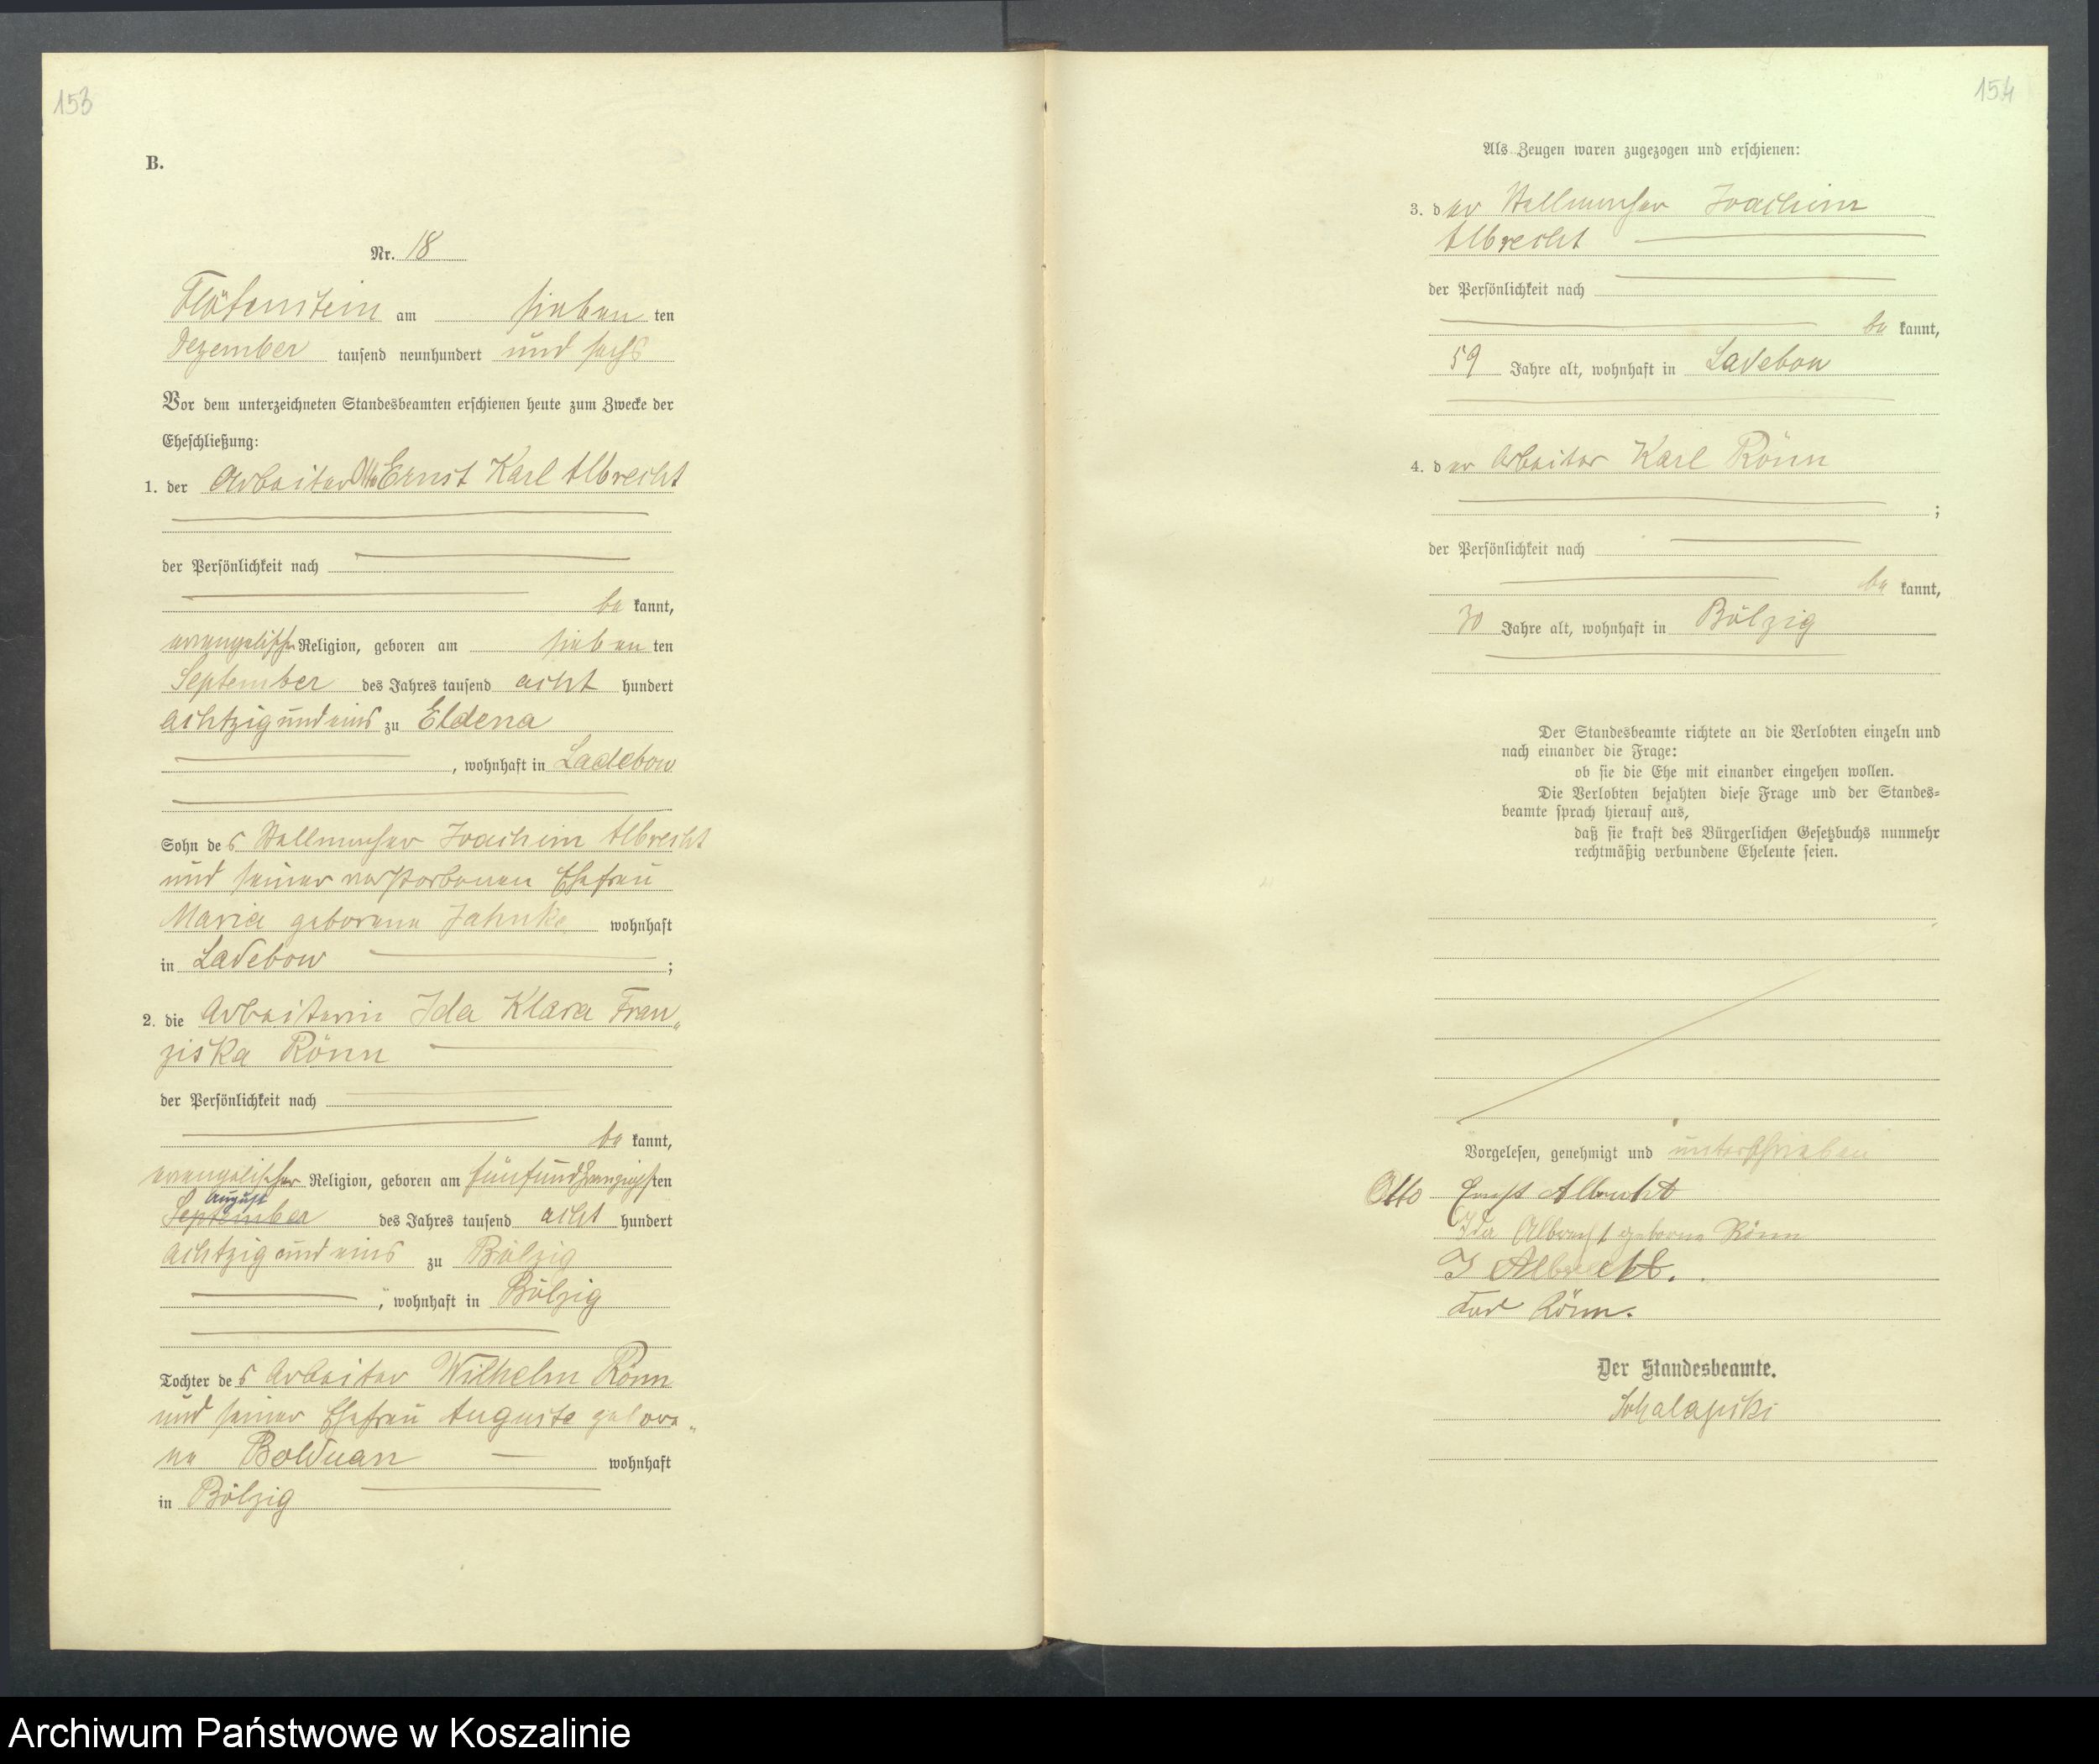 153
B.
Nr. 18
Flötenstein am sieben ten
Dezember tausend neunhundert und sechs
Vor dem unterzeichneten Standesbeamten erschienen heute zum Zwecke der
Eheschließung:
1. der Arbeiter Otto Ernst Karl Albrecht
der Persönlichkeit nach
be kannt,
evangelischer Religion, geboren am sieben ten
September des Jahres tausend acht hundert
achtzig und eins zu Eldena
, wohnhaft in Ladebow
Sohn des Stellmacher Joachim Albrecht
und seiner verstorbenen Ehefrau
Maria geborene Jahnke wohnhaft
in Ladebow ;
2. die Arbeiterin Ida Klara Fran„
ziska Rönn
der Persönlichkeit nach
be kannt,
evangelischer Religion, geboren am fünfundzwanzigsten
August
September des Jahres tausend acht hundert
achtzig und eins zu Bölzig
, wohnhaft in Bölzig
Tochter des Arbeiter Wilhelm Rönn
und seiner Ehefrau Auguste gebore„
ne Bolduan wohnhaft
in Bölzig
154
Als Zeugen waren zugezogen und erschienen:
3. der Stellmacher Joachim
Albrecht
der Persönlichkeit nach
be kannt,
59 Jahre alt, wohnhaft in Ladebow
4. der Arbeiter Karl Rönn
;
der Persönlichkeit nach
be kannt,
30 Jahre alt, wohnhaft in Bölzig
Der Standesbeamte richtete an die Verlobten einzeln und
nach einander die Frage:
ob sie die Ehe mit einander eingehen wollen.
Die Verlobten bejahten diese Frage und der Standes-
beamte sprach hierauf aus,
daß sie kraft des Bürgerlichen Gesetzbuchs nunmehr
rechtmäßig verbundene Eheleute seien.
Vorgelesen, genehmigt und unterschrieben
Otto Ernst Albrecht
Ida Albrecht geborne Rönn
J Albrecht.
Karl Rönn.
Der Standesbeamte.
Archiwum Państwowe w Koszalinie